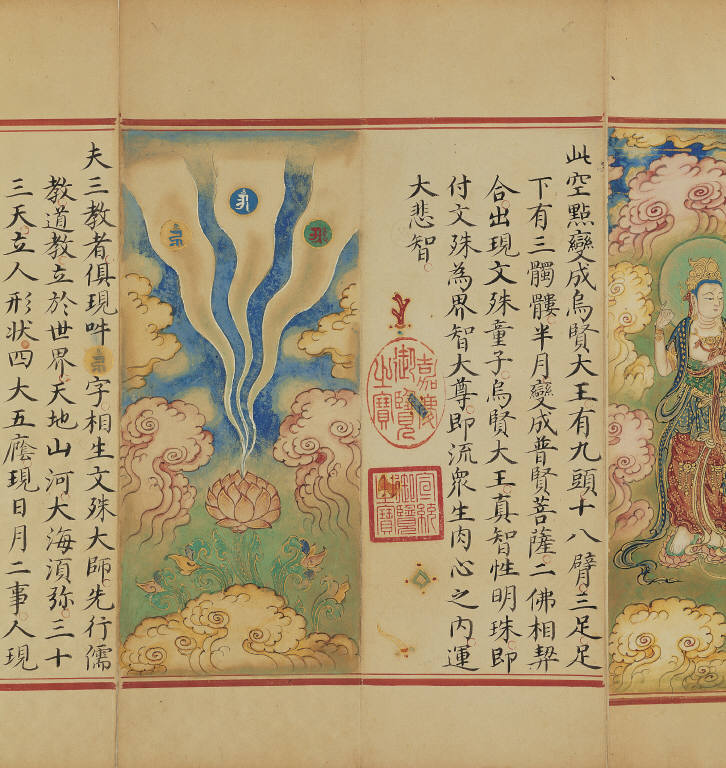 此空點變成烏賢大王有九頭十八臂三足足
下有三髑髏半月變成普賢菩薩二佛相契
合出現文殊童子烏賢大王真智性明珠即
付文殊為界智大尊即流眾生肉心之內運
大悲智
嘉慶御覽之寶
宣統御覽之寶
夫三教者俱現吽字相生文殊大師先行儒
教道教立於世界天地山河大海湏弥三十
三天立人形狀四大五廕現日月二事人現